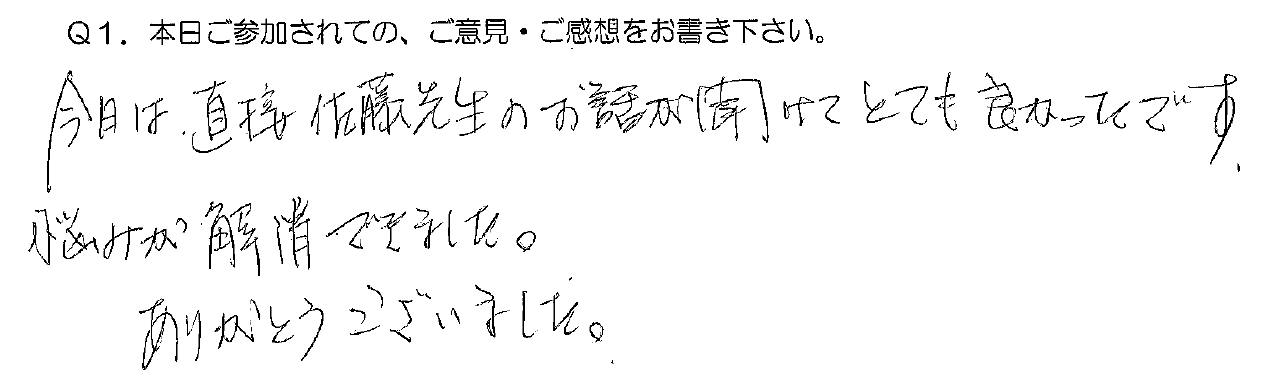 Q1．本日ご参加されての、ご意見・ご感想をお書き下さい。
今日は、直接佐藤先生のお話が聞けてとても良かったです.
悩みが解消できました。
ありがとうございました。